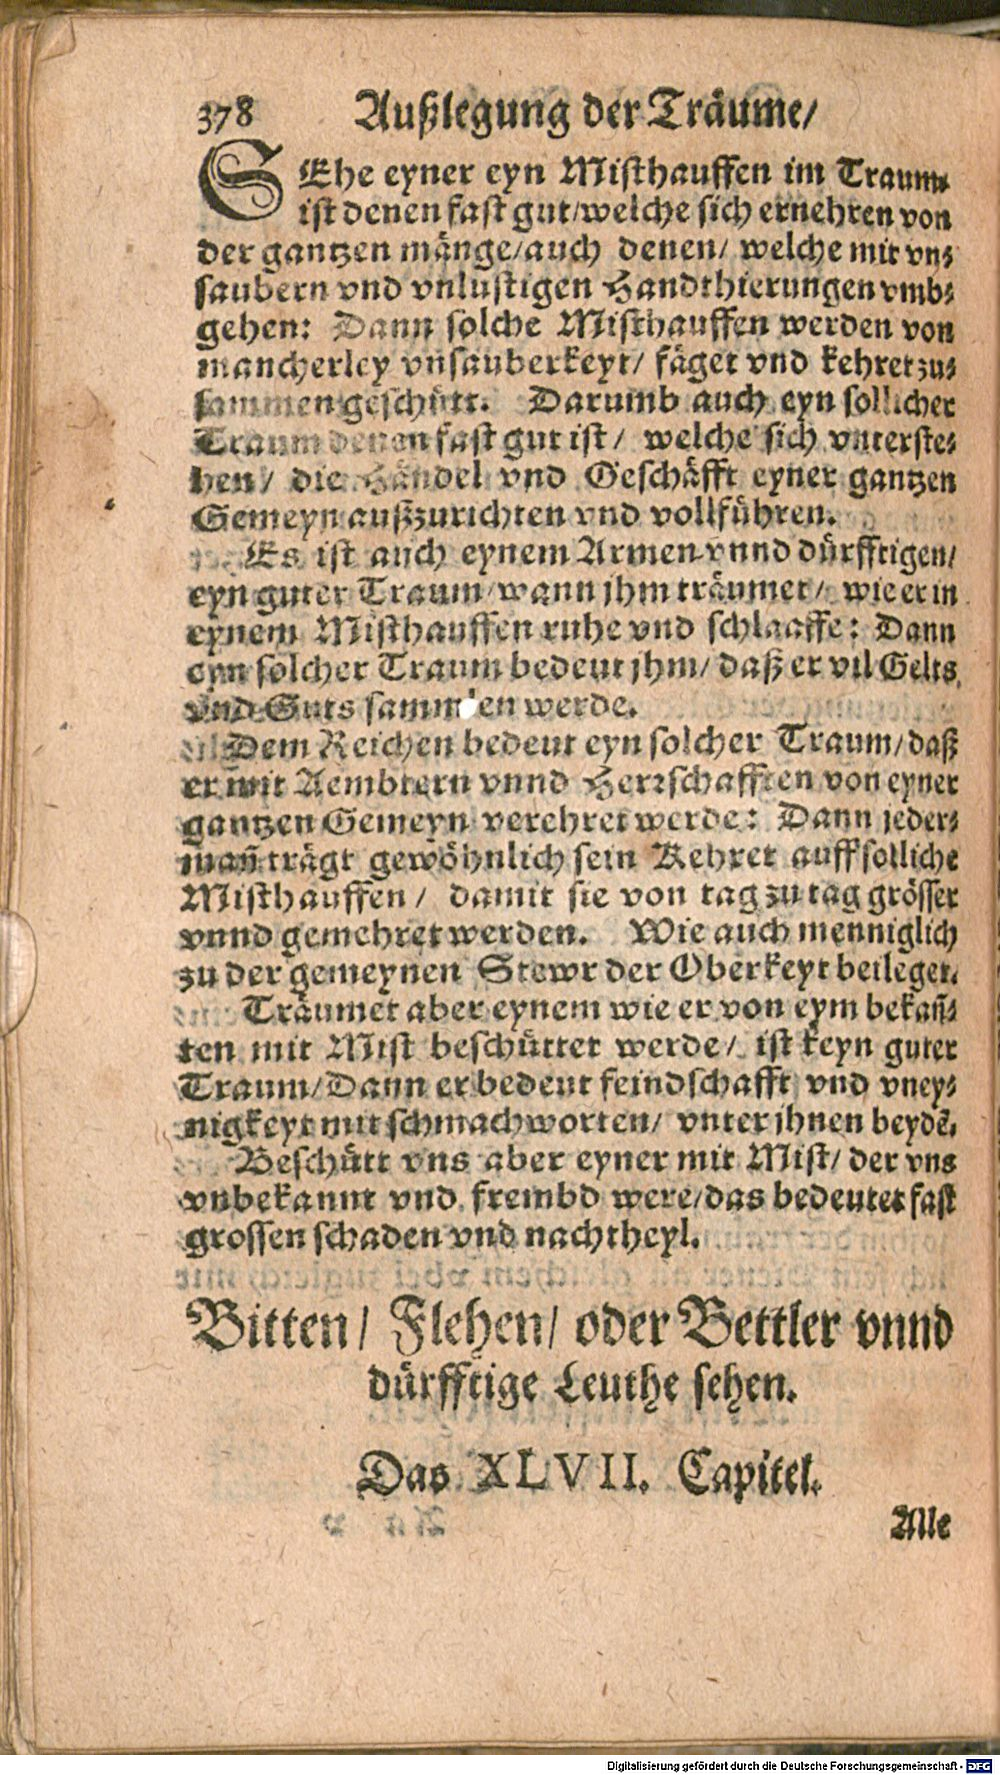 378 Außlegung der Träume/
SEhe eyner eyn Misthauffen im Traum
ist denen fast gut/welche sich ernehren von
der gantzen mänge/auch denen/ welche mit vn⸗
saubern vnd vnlustigen Handthierungen vmb⸗
gehen: Dann solche Misthauffen werden von
mancherley vnsauberkeyt/ fäget vnd kehret zu⸗
sammen geschütt. Darumb auch eyn sollicher
Traum denen fast gut ist/ welche sich vnterste⸗
hen/ die Händel vnd Geschäfft eyner gantzen
Gemeyn außzurichten vnd vollführen.
Es ist auch eynem Armen vnnd dürfftigen/
eyn guter Traum/wann jhm träumet/ wie er in
eynem Misthauffen ruhe vnd schlaaffe: Dann
eyn solcher Traum bedeut jhm/ daß er vil Gelts
vnd Guts sammlen werde.
Dem Reichen bedeut eyn solcher Traum/daß
er mit Aembtern vnnd Herꝛschafften von eyner
gantzen Gemeyn verehret werde: Dann jeder⸗
mañ trägt gewöhnlich sein Kehret auff solliche
Misthauffen/ damit sie von tag zu tag grösser
vnnd gemehret werden. Wie auch menniglich
zu der gemeynen Stewr der Oberkeyt beileget.
Träumet aber eynem wie er von eym bekañ⸗
ten mit Mist beschüttet werde/ ist keyn guter
Traum/Dann er bedeut feindschafft vnd vney⸗
nigkeyt mit schmachworten/ vnter jhnen beydẽ.
Beschütt vns aber eyner mit Mist/ der vns
vnbekannt vnd frembd were/das bedeutet fast
grossen schaden vnd nachtheyl.
Bitten/ Flehen/ oder Bettler vnnd
dürfftige Leuthe sehen.
Das XLVII. Capitel.
Alle
Digitalisierung gefördert durch die Deutsche Forschungsgemeinschaft - DFG